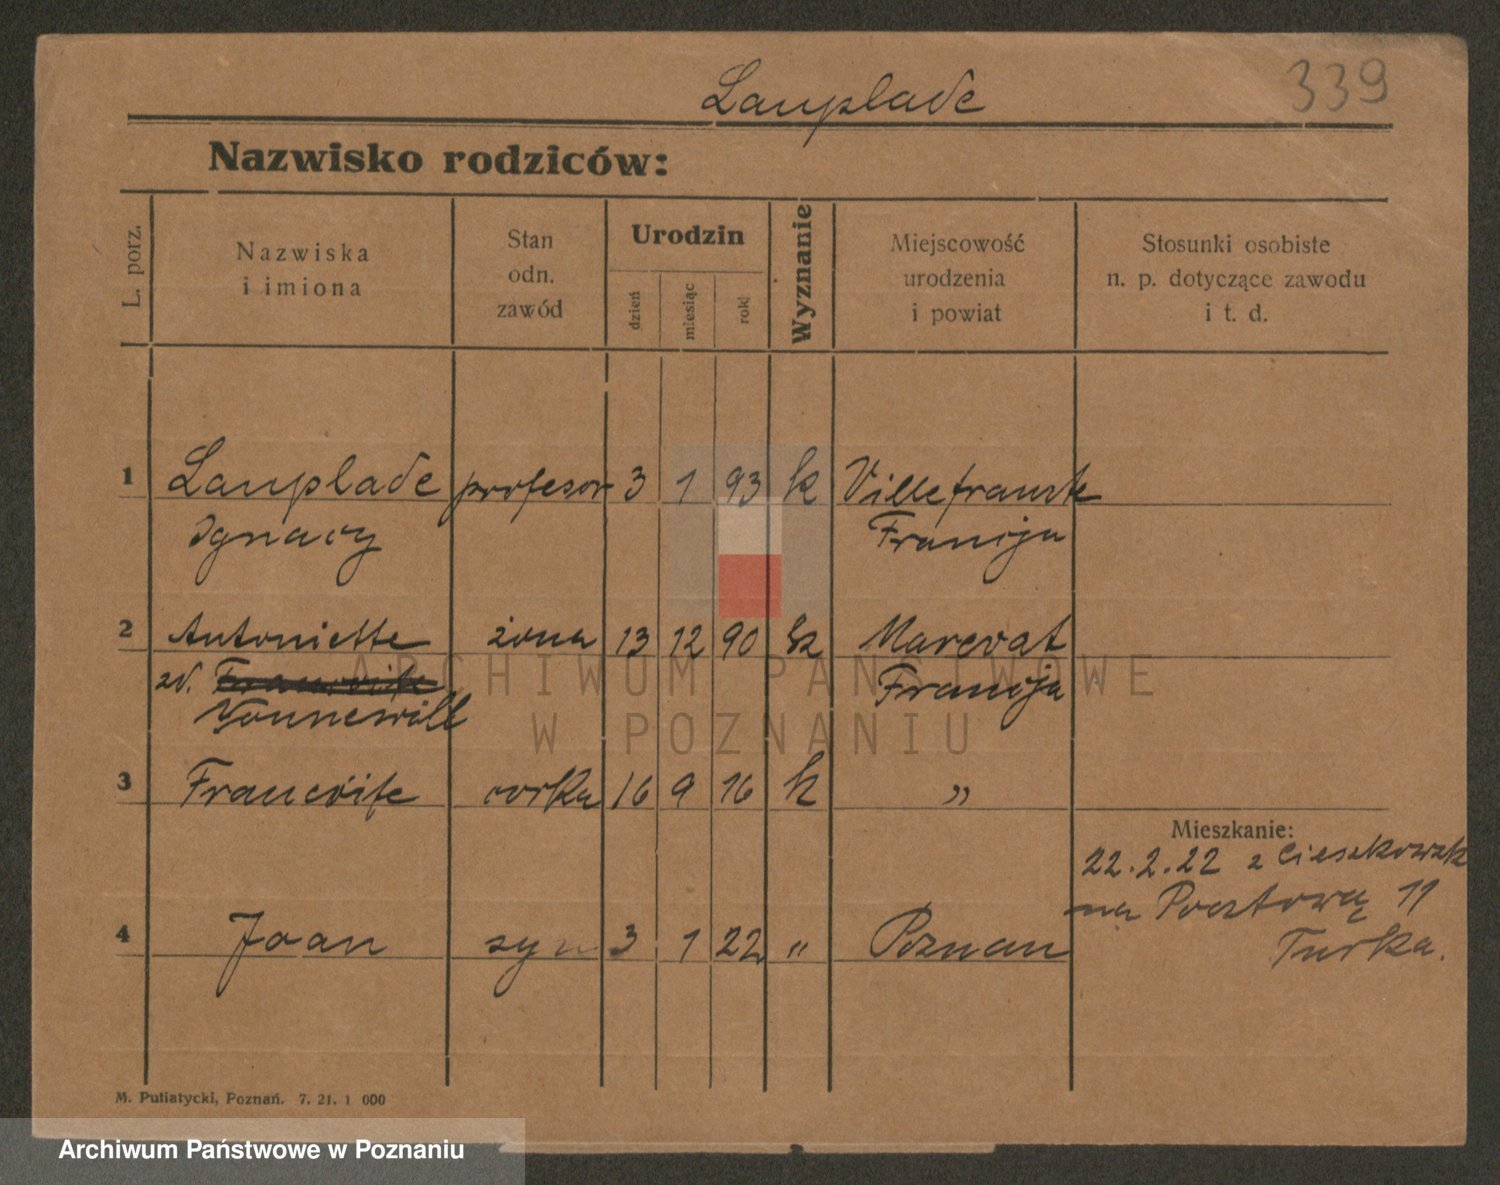 Lauplade 339
Nazwisko rodziców:
L. porz. Nazwiska i imiona Stan odn. zawód Urodzin dzień miesiąc rok Wyznanie Miejscowość urodzenia i powiat Stosunki osobiste n. p. dotyczące zawodu i t. d.
1 Lauplade profesor 3 1 93 k Villefranck
Ignacy Francja
2 Antoniette żona 13 12 90 k Marcvat
zd. Francja
3 corka 16 9 16 k "
Mieszkanie:
22.2.22 z Cieszkowsk
na Pocztową 11
4 Joan syn 3 1 22 " Poznan
Turka.
M. Putiatycki, Poznań. 7. 21. 1 000
ARCHIWUM PAŃSTWOWE
W POZNANIU
Archiwum Państwowe w Poznaniu